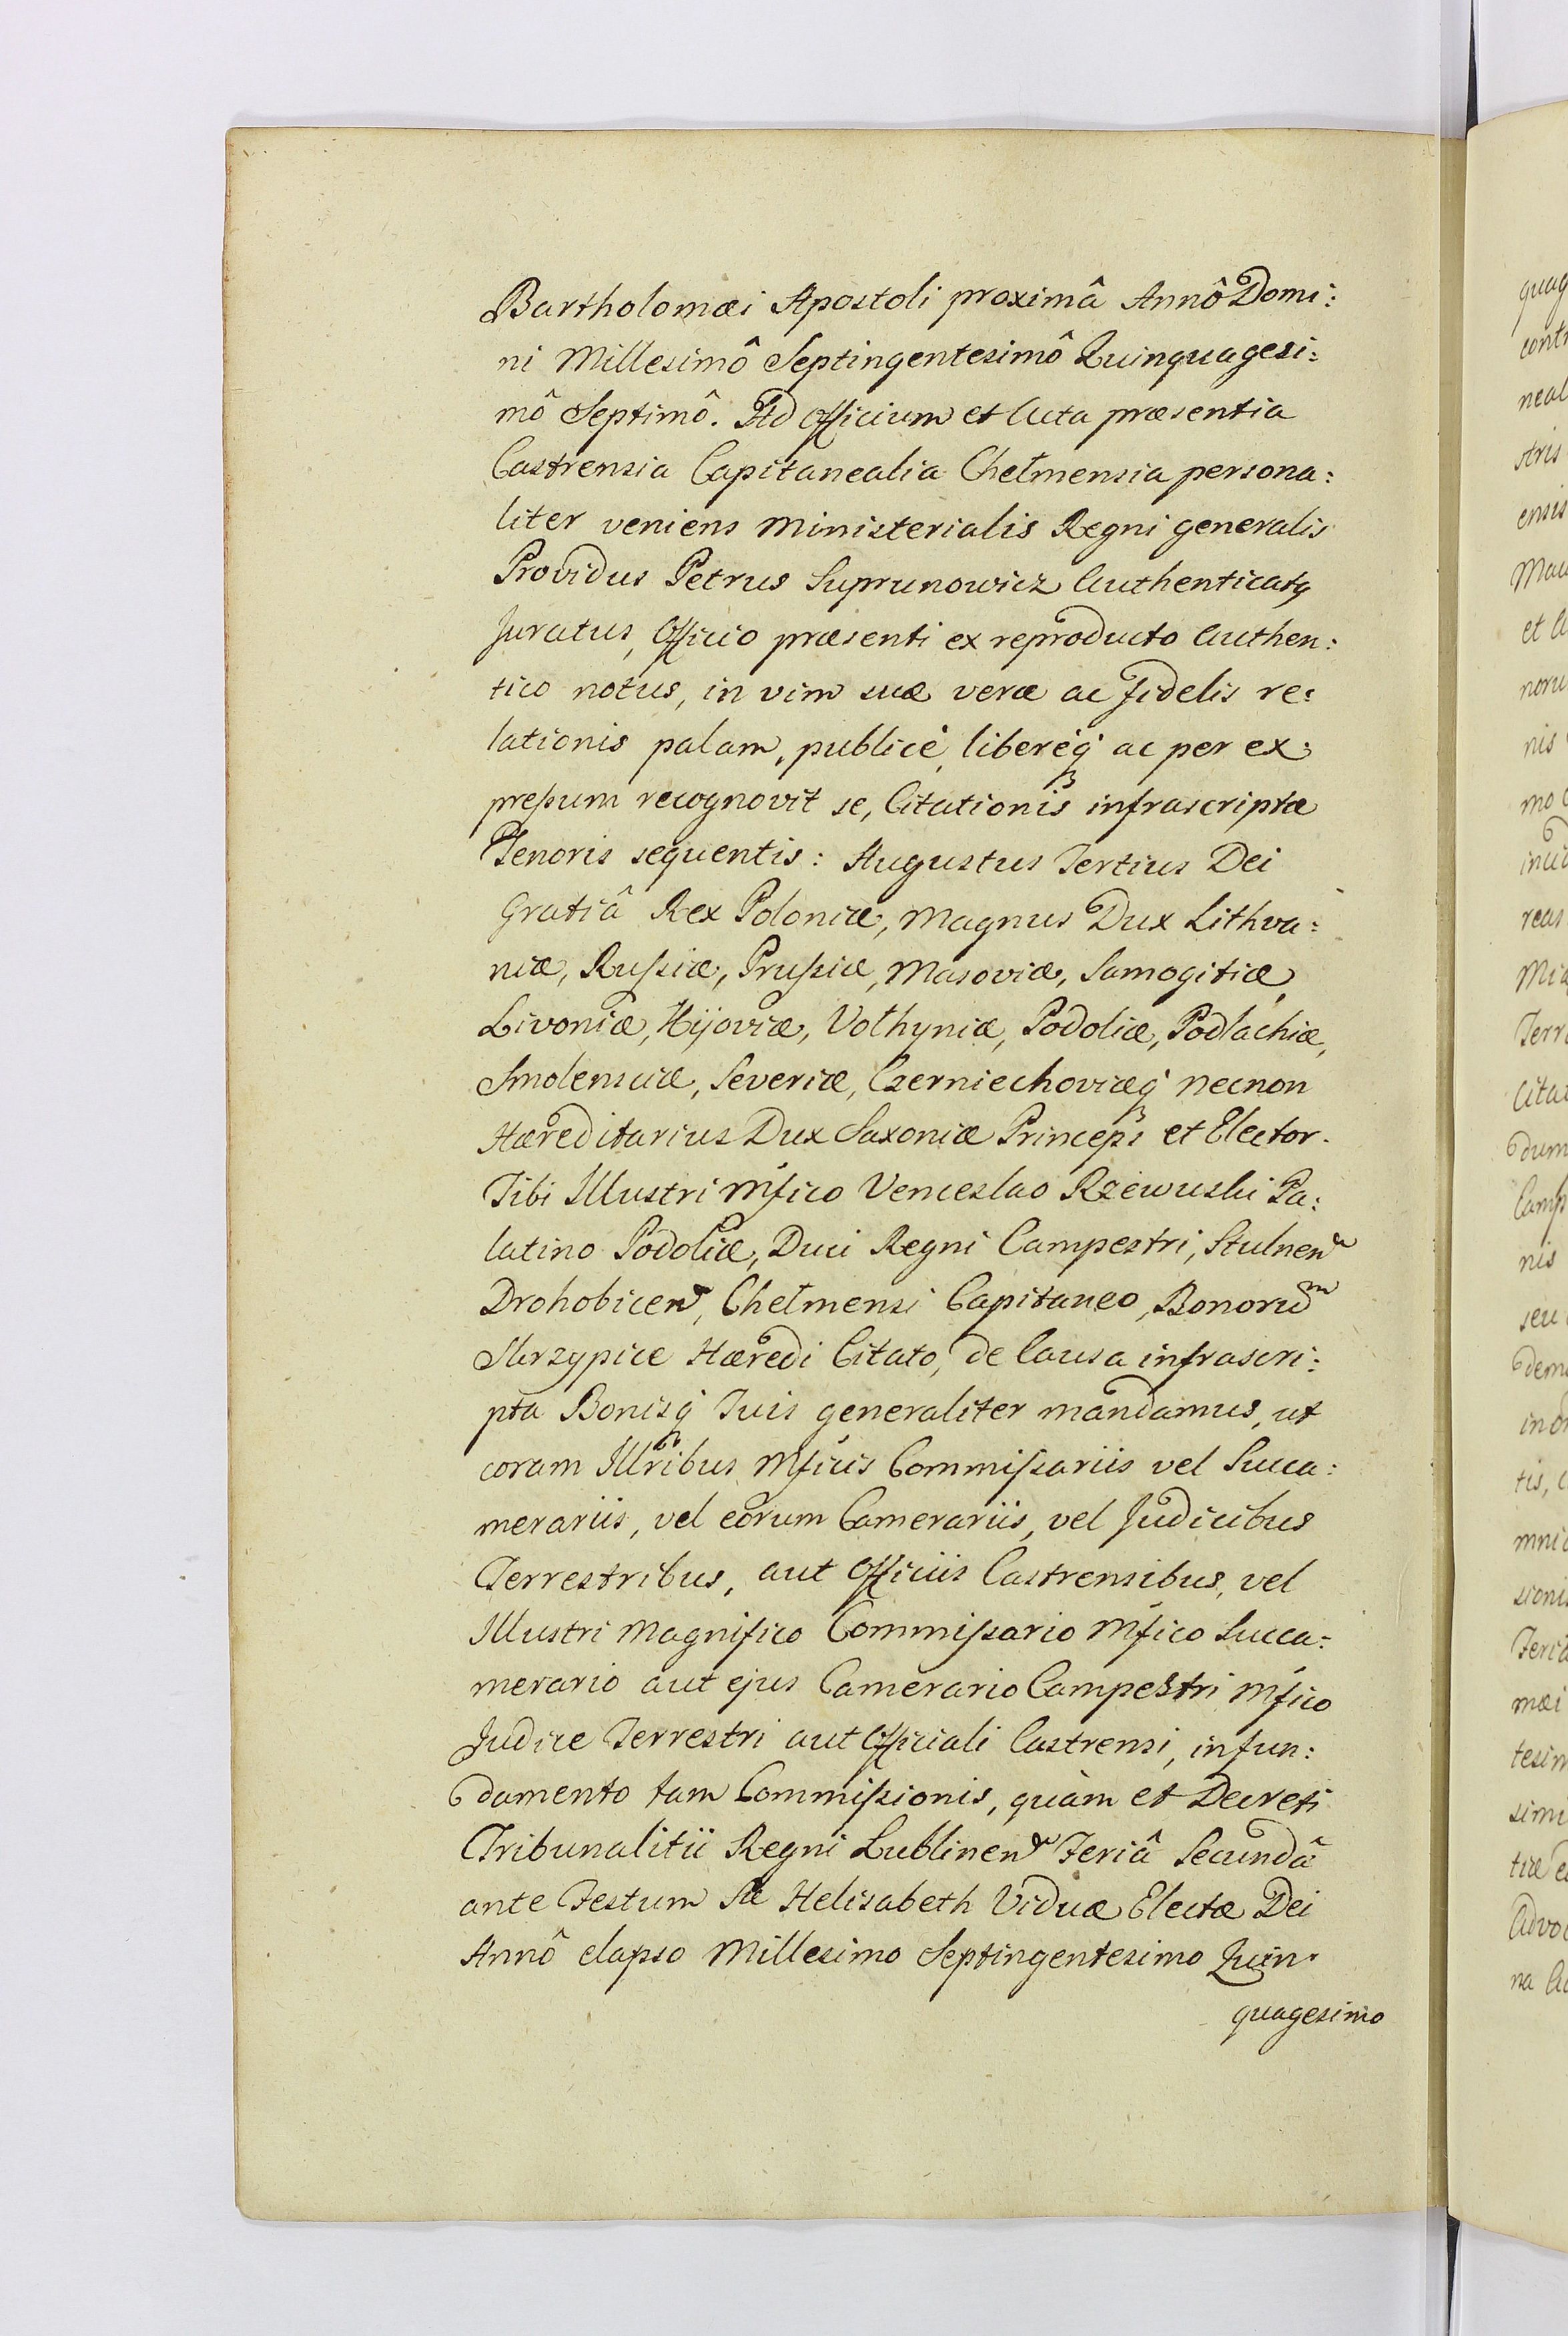 Bartholomæi Apostoli proximâ Annô Domi:
ni Millesimô Septingentesimô Quinquagesi:
mô Septimô. Ad Officium et Acta præsentia
Castrensia Capitanealia Chełmensia persona:
liter veniens Ministerialis Regni generalis
Providus Petrus Suprunowicz Authenticatq
Juratus, Officio præsenti ex reproducto Authen:
tico notus, in vim suæ veræ ac fidelis re:
lationis palam, publicè, liberèq3 ac per ex:
preßum recognovit se, Citationis infrascriptæ
Tenoris sequentis: Augustus Tertius Dei
Gratiâ Rex Poloniæ, Magnus Dux Lithva:
niæ, Rußiæ, Prußiæ, Masoviæ, Samogitiæ,
Livoniæ, Kijoviæ, Vołhyniæ, Podoliæ, Podlachiæ,
Smolensciæ, Severiæ, Czerniechoviæq3 necnon
Hæreditarius Dux Saxoniæ Princeps et Elector.
Tibi Illustri Mfico Venceslao Rzewuski Pa:
latino Podoliæ, Duci Regni Campestri, Stulnen
Drohobicen, Chełmensi Capitaneo, Bonorum
Skrzypice Hæredi Citato, de Causa infrascri:
pta Bonisq3 Tuis generaliter mandamus, ut
coram Illribus Mficis Commißariis vel Succa:
merariis, vel eorum Camerariis, vel Judicibus
Terrestribus, aut Officiis Castrensibus, vel
Illustri Magnifico Commißario Mfico Succa:
merario aut ejus Camerario Campestri Mfico
Judice Terrestri aut Officiali Castrensi, in fun:
damento tam Commißionis, quàm et Decreti
Tribunalitii Regni Lublinen Feriâ Secundâ
ante Festum Stæ Helisabeth Viduæ Electæ Dei
Annô elapso Millesimo Septingentesimo Quin:
quagesimo